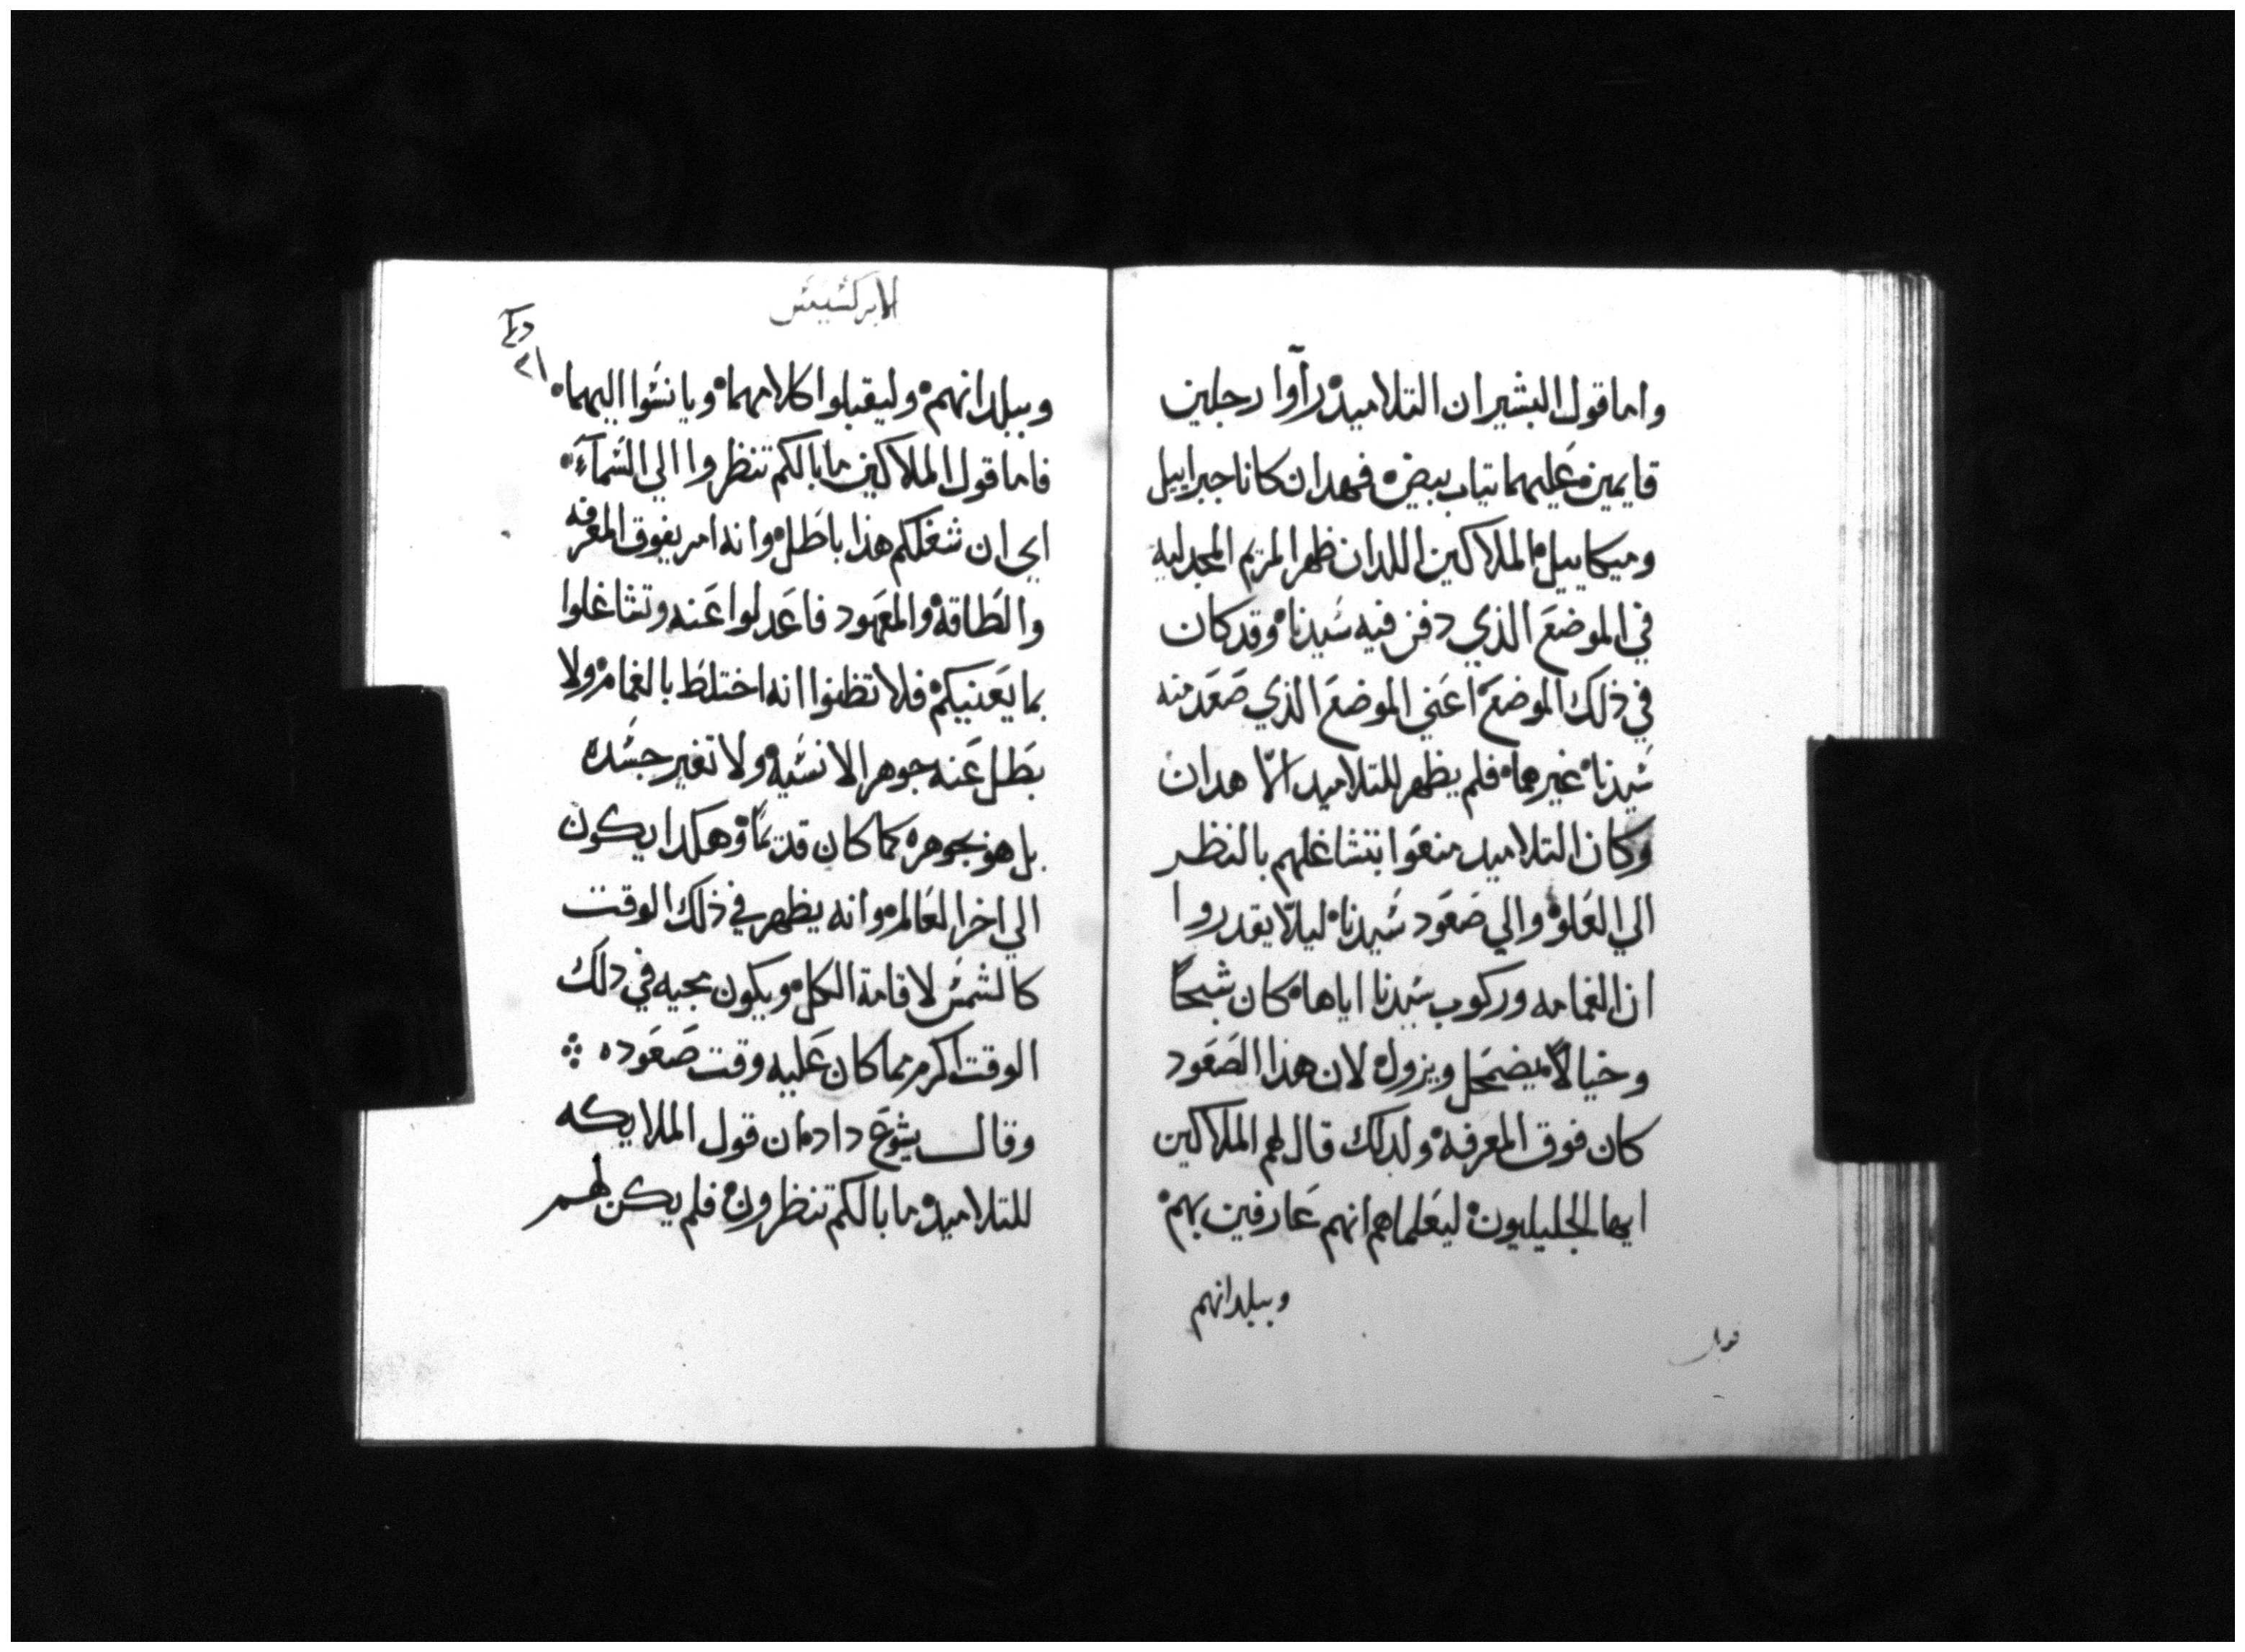 واما قول البشير ان التلاميد راوا رجلين
قايمين عليهما تياب بيض فهدان كانا جبراييل
وميكاييل الملاكين اللدان ظهرا لمريم المجدليه
في الموضع الذي دفن فيه سيدنا وقد كان
في ذلك الموضع اعني الموضع الذي صعد منه
سيدنا غيرهما فلم يظهر للتلاميد الّا هدان
وكان التلاميد منعوا بتشاغلهم بالنظر
الي العلو والي صعود سيدنا ليلّا يقدروا
ان الغمامه وركوب سيدنا اياها كان شبحًا
وخيالًا يضمحل ويزول لان هذا الصعود
كان فوق المعرفة ولدلك قال لهم الملاكين
ايها الجليليون ليعلماهم انهم عارفين بهم
وببلدانهم
قوبل
الابركسيس
٢١
وببلدانهم وليقبلوا كلامهما ويانسوا اليهما
فاما قول الملاكين ما بالكم تنظروا الي السمآء
اي ان شغلكم هذا باطل وانه امر يفوق المعرفه
والطاقة والمعهود فاعدلوا عنه وتشاغلوا
بما يعنيكم فلا تظنوا انه اختلط بالغمام ولا
بطل عنه جوهر الانسية ولا تغير جسده
بل هو بجوهره كما كان قديمًا وهكدا يكون
الي اخر العالم وانه يظهر في ذلك الوقت
كالشمس لاقامة الكل ويكون مجيه في دلك
الوقت اكرم مما كان عليه وقت صعوده
وقال يشوع داد ان قول الملايكه
للتلاميد ما بالكم تنظرون فلم يكن لهم